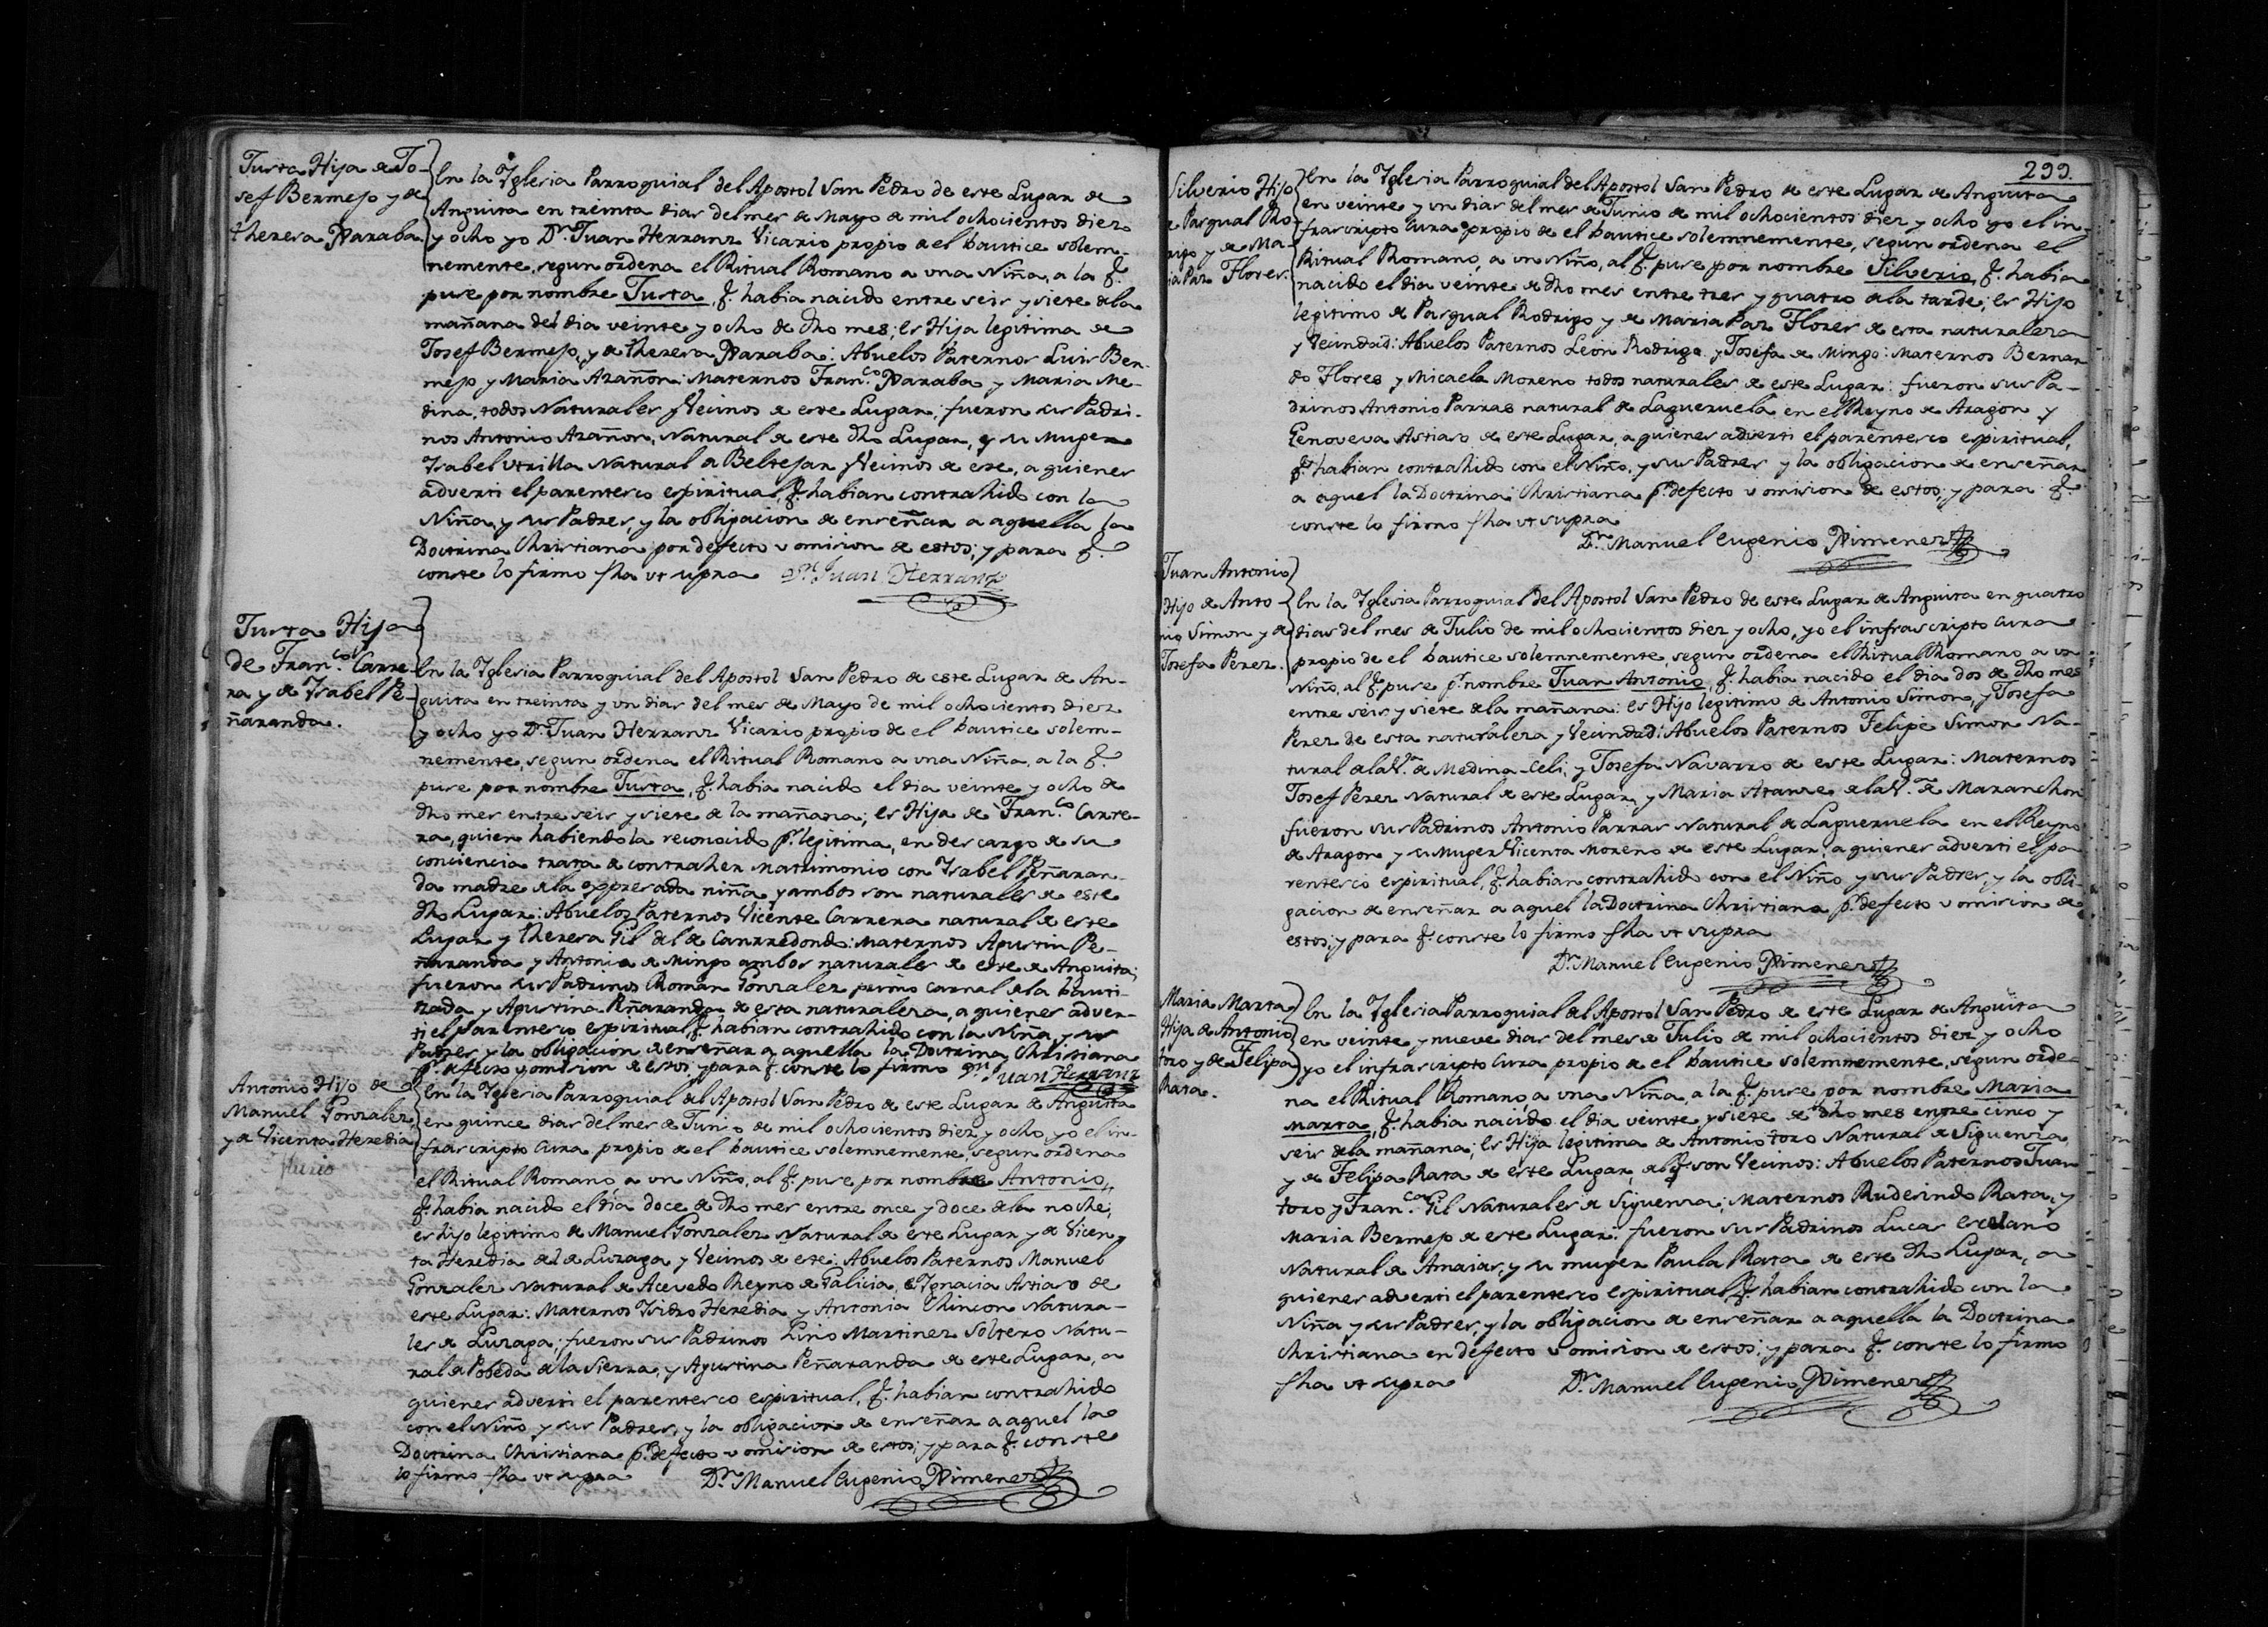 Justa Hija de Jo-
sef Bermejo y de
Theresa Xaraba.
En la Yglesia Parroquial del Apostol San Pedro de este Lugar de
Anguita en treinta dias del mes de Mayo de mil ochocientos diez
y ocho yo Dn. Juan Herranz Vicario propio de el bautice solem-
nemente, segun ordena el Ritual Romano a una Niña, a la q.
puse por nombre Justa, q. habia nacido entre seis y siete de la
mañana del dia veinte y ocho de dho mes; es Hija legitima de
Josef Bermejo, y de Theresa Xaraba: Abuelos Paternos Luis Ber-
mejo y Maria Azañon: Maternos Fran.co Xaraba y Maria Me-
dina, todos Naturales y Vecinos de este Lugar; fueron sus Padri-
nos Antonio Azañon, Natural de este dho Lugar, y su Muger
Ysabel Utrilla Natural de Beltejar y Vecinos de este, a quienes
adverti el parentesco espiritual, q. habian contrahido con la
Niña y sus Padres, y la obligacion de enseñar a aquella la
Doctrina Christiana por defecto u omision de estos; y para q.
conste lo firmo fha ut supra Dn. Juan Herranz
Justa Hija
de Fran.co Carre-
ra y de Ysabel Pe-
ñaranda.
En la Yglesia Parroquial del Apostol San Pedro de este Lugar de An-
guita en treinta y un dias del mes de Mayo de mil ochocientos diez
y ocho yo Dn. Juan Herranz Vicario propio de el bautice solem-
nemente, segun ordena el Ritual Romano a una Niña, a la q.
puse por nombre Justa, q. habia nacido el dia veinte y ocho de
dho mes entre seis y siete de la mañana; es Hija de Fran.co Carre-
ra, quien habiendola reconocido pr. legitima, en descargo de su
conciencia trata de contraher matrimonio con Ysabel Peñaran-
da madre de la expresada niña y ambos son naturales de este
dho Lugar: Abuelos Paternos Vicente Carrera natural de este
Lugar y Theresa Gil del de Canrredondo: Maternos Agustin Pe-
ñaranda y Antonia de Mingo ambos naturales de este de Anguita;
fueron sus Padrinos Román Gonzalez primo carnal de la bauti-
zada y Agustina Peñaranda de esta naturaleza, a quienes adver-
ti el parentesco espiritual, q. habian contrahido con la Niña y sus
Padres, y la obligacion de enseñar a aquella la Doctrina Christiana
pr. defecto u omision de estos; y para q. conste lo firmo Dn. Juan Herranz
Antonio Hijo de
Manuel Gonzalez,
y de Vicenta Heredia
En la Yglesia Parroquial del Apostol San Pedro de este Lugar de Anguita
en quince dias del mes de Junio de mil ochocientos diez y ocho, yo el in-
frascripto Cura propio de el bautice solemnemente, segun ordena
el Ritual Romano, a un Niño, al q. puse por nombre Antonio,
q. habia nacido el dia doce de dho mes entre once y doce de la noche;
es hijo legitimo de Manuel Gonzalez Natural de este Lugar y de Vicen-
ta Heredia del de Luzaga y Vecinos de este: Abuelos Paternos Manuel
Gonzalez Natural de Acevedo Reyno de Galicia, e Ygnacia Astiaso de
este Lugar: Maternos Ysidro Heredia y Antonia Chincon Natura-
les de Luzaga; fueron sus Padrinos Lino Martinez Soltero Natu-
ral de Pobeda de la Sierra, y Agustina Peñaranda de este Lugar, a
quienes adverti el parentesco espiritual, q. habian contrahido
con el Niño y sus Padres, y la obligacion de enseñar a aquel la
Doctrina Christiana pr. defecto u omision de estos; y para q. conste
lo firmo fha ut supra Dn. Manuel Eugenio Ximenez
299.
Silverio Hijo
de Pasqual Ro-
rigo y de Ma-
ia Paz Flores.
En la Yglesia Parroquial del Apostol San Pedro de este Lugar de Anguita
en veinte y un dias del mes de Junio de mil ochocientos diez y ocho yo el in-
frascripto Cura propio de el bautice solemnemente, segun ordena el
Ritual Romano, a un Niño, al q. puse por nombre Silverio, q. habia
nacido el dia veinte de dho mes entre tres y quatro de la tarde; es Hijo
legitimo de Pasqual Rodrigo y de Maria Paz Flores de esta naturaleza
y Vecindad: Abuelos Paternos Leon Rodrigo y Josefa de Mingo: Maternos Bernar
do Flores y Micaela Moreno todos naturales de este Lugar: fueron sus Pa-
drinos Antonio Parras natural de Lagueruela en el Reyno de Aragon y
Genoveva Astiaso de este Lugar, a quienes adverti el parentesco espiritual,
q. habian contrahido con el Niño, y sus Padres y la obligacion de enseñar
a aquel la Doctrina Christiana pr. defecto u omision de estos; y para q.
conste lo firmo fha ut supra
Dn. Manuel Eugenio Ximenez
Juan Antonio
Hijo de Anto
nio Simon y de
Josefa Perez.
En la Yglesia Parroquial del Apostol San Pedro de este Lugar de Anguita en quatro
dias del mes de Julio de mil ochocientos diez y ocho, yo el infrascripto Cura
propio de el bautice solemnemente, segun ordena el Ritual Romano a un
Niño, al q. puse pr. nombre Juan Antonio, q. habia nacido el dia dos de dho mes
entre seis y siete de la mañana: es Hijo legitimo de Antonio Simon, y Josefa
Perez de esta naturaleza y Vecindad: Abuelos Paternos Felipe Simon Na-
tural de la V.a de Medina-Celi, y Josefa Navarro de este Lugar: Maternos
Josef Perez Natural de este Lugar, y Maria Atanze de la V.a de Maranchon
fueron sus Padrinos Antonio Parras Natural de Lagueruela en el Reyno
de Aragon y su Muger Vicenta Moreno de este Lugar; a quienes adverti el pa
rentesco espiritual, q. habian contrahido con el Niño y sus Padres y la obli-
gacion de enseñar a aquel la Doctrina Christiana pr. defecto u omision de
estos; y para q. conste lo firmo fha ut supra
Dn. Manuel Eugenio Ximenez
Maria Marta
Hija de Antonio
toro y de Felipa
Rata.
En la Yglesia Parroquial del Apostol San Pedro de este Lugar de Anguita
en veinte y nueve dias del mes de Julio de mil ochocientos diez y ocho
yo el infrascripto Cura propio de el bautice solemnemente, segun orde-
na el Ritual Romano, a una Niña, a la q. puse por nombre Maria
Marta, q. habia nacido el dia veinte y siete de dho mes entre cinco y
seis de la mañana; es Hija legitima de Antonio toro Natural de Siguenza
y de Felipa Rata de este Lugar, del q. son Vecinos: Abuelos Paternos Juan
toro y Fran.ca Gil Naturales de Siguenza; Maternos Rudesindo Rata, y
Maria Bermejo de este Lugar: fueron sus Padrinos Lucas Escolano
Natural de Amaias, y su muger Paula Rata de este dho Lugar, a
quienes adverti el parentesco espiritual, q. habian contrahido con la
Niña y sus Padres, y la obligacion de enseñar a aquella la Doctrina
Christiana en defecto u omision de estos; y para q. conste lo firmo
fha ut supra Dn. Manuel Eugenio Ximenez